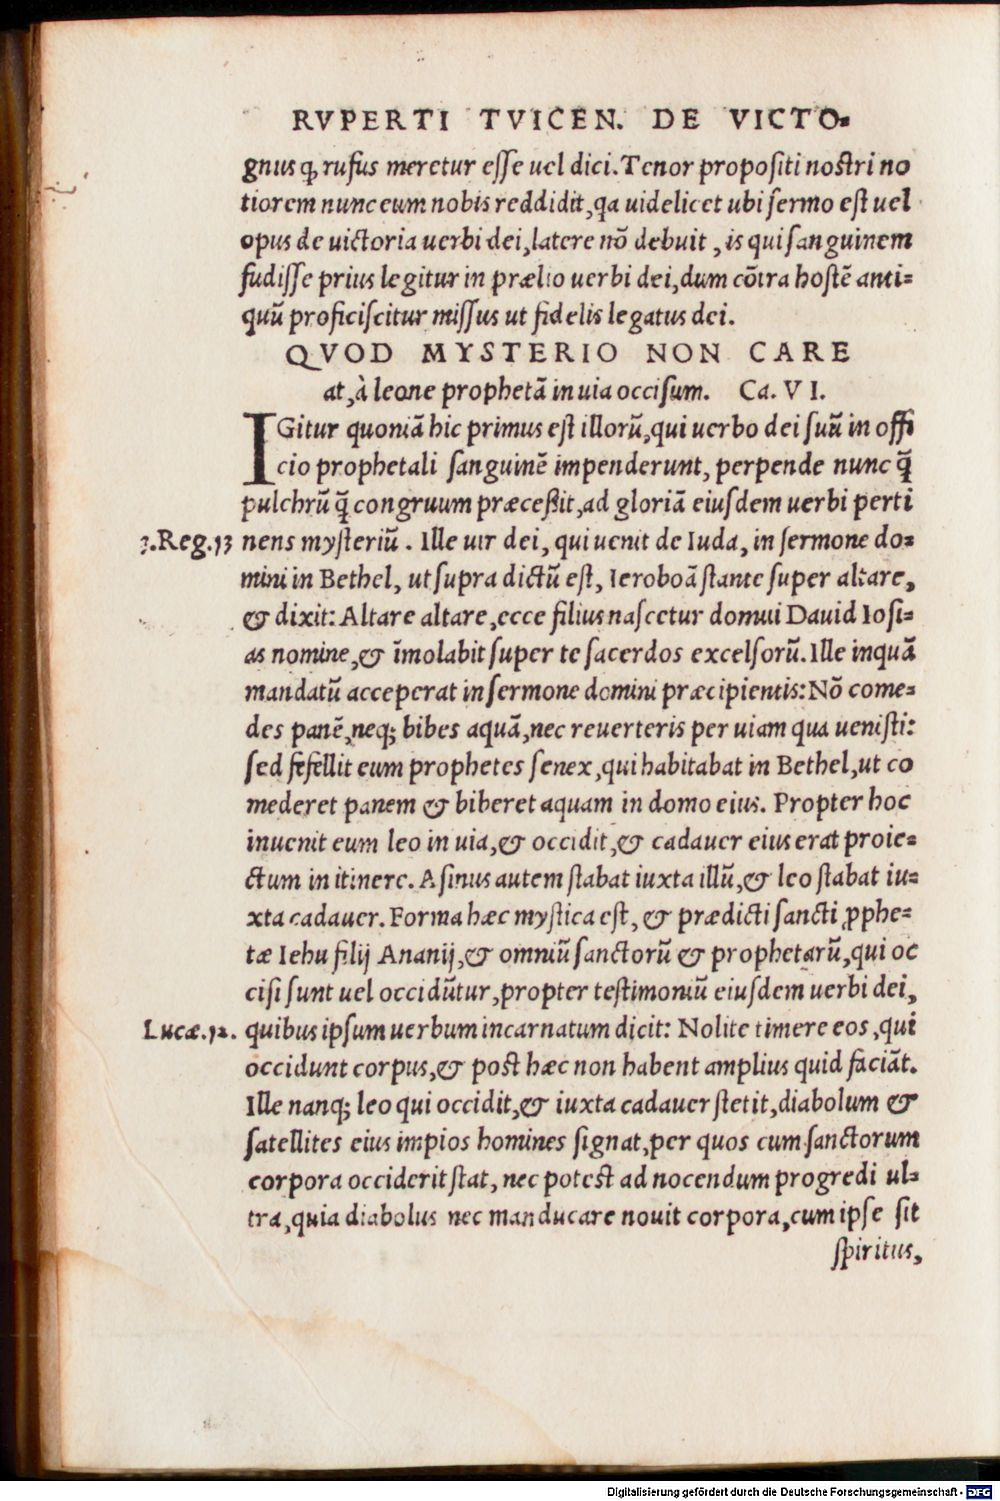 RVPERTI TVICEN. DE VICTO⸗
gnus ꝙ rufus meretur esse uel dici. Tenor propositi nostri no
tiorem nunc eum nobis reddidit, qa uidelicet ubi sermo est uel
opus de uictoria uerbi dei, latere nō debuit, is qui sanguinem
fudisse prius legitur in prælio uerbi dei, dum cōtra hostē anti⸗
quū proficiscitur missus ut fidelis legatus dei.
QVOD MYSTERIO NON CARE
at, à leone prophetā in uia occisum. Ca. VI.
IGitur quoniā hic primus est illorū, qui uerbo dei suū in offi
cio prophetali sanguinē impenderunt, perpende nunc q̄
pulchrū q̄ congruum præceßit, ad gloriā eiusdem uerbi perti
3.Reg.13 nens mysteriū. Ille uir dei, qui uenit de Iuda, in sermone do⸗
mini in Bethel, ut supra dictū est, Ieroboā stante super altare,
& dixit: Altare altare, ecce filius nascetur domui Dauid Iosi⸗
as nomine, & īmolabit super te sacerdos excelsorū. Ille inquā
mandatū acceperat in sermone domini præcipientis: Nō come⸗
des panē, neq; bibes aquā, nec reuerteris per uiam qua uenisti:
sed fefellit eum prophetes senex, qui habitabat in Bethel, ut co
mederet panem & biberet aquam in domo eius. Propter hoc
inuenit eum leo in uia, & occidit, & cadauer eius erat proie⸗
ctum in itinere. Asinus autem stabat iuxta illū, & leo stabat iu⸗
xta cadauer. Forma hæc mystica est, & prædicti sancti ꝓphe⸗
tæ Iehu filij Ananij, & omniū sanctorū & prophetarū, qui oc
cisi sunt uel occidūtur, propter testimoniū eiusdem uerbi dei,
Lucæ.12. quibus ipsum uerbum incarnatum dicit: Nolite timere eos, qui
occidunt corpus, & post hæc non habent amplius quid faciāt.
Ille nanq; leo qui occidit, & iuxta cadauer stetit, diabolum &
satellites eius impios homines signat, per quos cum sanctorum
corpora occiderit stat, nec potest ad nocendum progredi ul⸗
tra, quia diabolus nec manducare nouit corpora, cum ipse sit
spiritus,
Digitalisierung gefördert durch die Deutsche Forschungsgemeinschaft - DFG